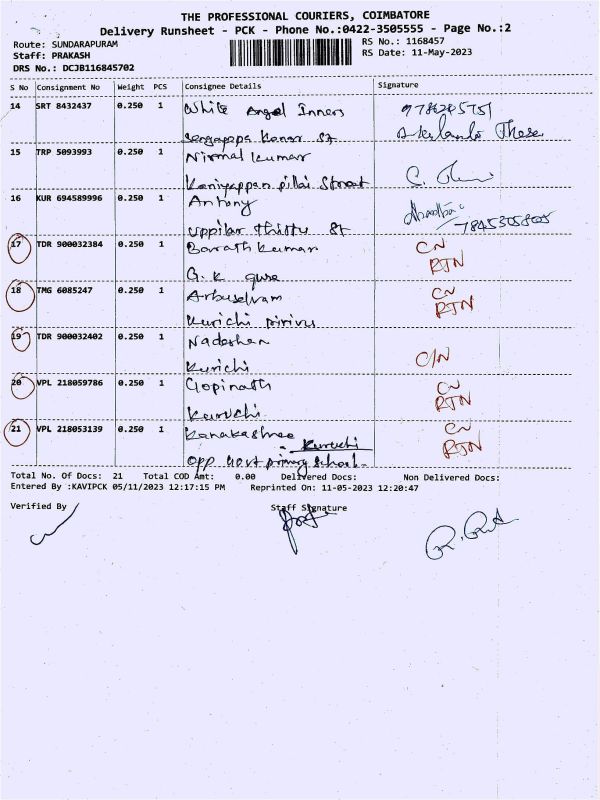 THE PROFESSIONAL COURIERS, COIMBATORE
Delivery Runsheet - PCK - Phone No.:0422-3505555 - Page No.:2
Route: SUNDARAPURAM
RS No.: 1168457
Staff: PRAKASH
RS Date: 11-May-2023
DRS No.: DCJB116845702
S No Consignment No Weight PCS Consignee Details Signature
14 SRT 8432437 0.250 1 White Angel Inners
St
15 TRP 5093993 0.250 1 Nirmal Kumar
Kaniyappan pillai Street
16 KUR 694589996 0.250 1 Antony
uppilar thittu St
17 TDR 900032384 0.250 1 Barath Kumar CN
RTN
G. K
18 TMG 6085247 0.250 1 Arbuselvam CN
RTN
Kurichi pirivu
19 TDR 900032402 0.250 1 Nadeshan
Kurichi C/N
20 VPL 218059786 0.250 1 Gopinath CN
RTN
Kurichi
21 VPL 218053139 0.250 1 Kanakashree CN
Kurichi RTN
Opp Govt primary school
Total No. Of Docs: 21 Total COD Amt: 0.00 Delivered Docs: Non Delivered Docs:
Entered By :KAVIPCK 05/11/2023 12:17:15 PM Reprinted On: 11-05-2023 12:20:47
Verified By Staff Signature